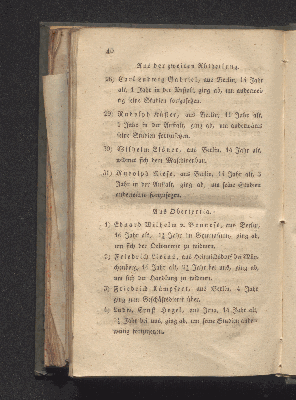 40
Aus der zweiten Abtheilung.
28) Carl Ludwig Gabriel, aus Berlin, 14 Jahr
alt, 1 Jahr in der Anstalt, ging ab, um anderwei-
tig seine Studien fortzusetzen.
29) Rudolph Köster, aus Berlin, 11 Jahr alt,
3 Jahr in der Anstalt, ging ab, um anderwärts
seine Studien fortzusetzen.
30) Wilhelm Elsner, aus Berlin, 14 Jahr alt,
widmet sich dem Maschinenbau.
31) Rudolph Riese, aus Berlin, 14 Jahr alt, 3
Jahr in der Anstalt, ging ab, um seine Studien
anderweitig fortzusetzen.
Aus Obertertia.
1) Eduard Wilhelm v. aus
16 Jahr alt, Jahr im Gymnasium, ging ab,
um sich der Oekonomie zu widmen.
2) Friedrich aus bei Mün-
cheberg, 16 Jahr alt, Jahr bei uns, ging ab, um
sich der Handlung zu widmen.
3) Friedrich Kämpfert, aus Berlin, Jahr
ging zum Geschäftsleben über.
4) Ludw. Ernst Hegel, aus Jena, 14 Jahr alt,
Jahr bei uns, ging ab, um seine Studien ander-
wärts fortzusetzen.